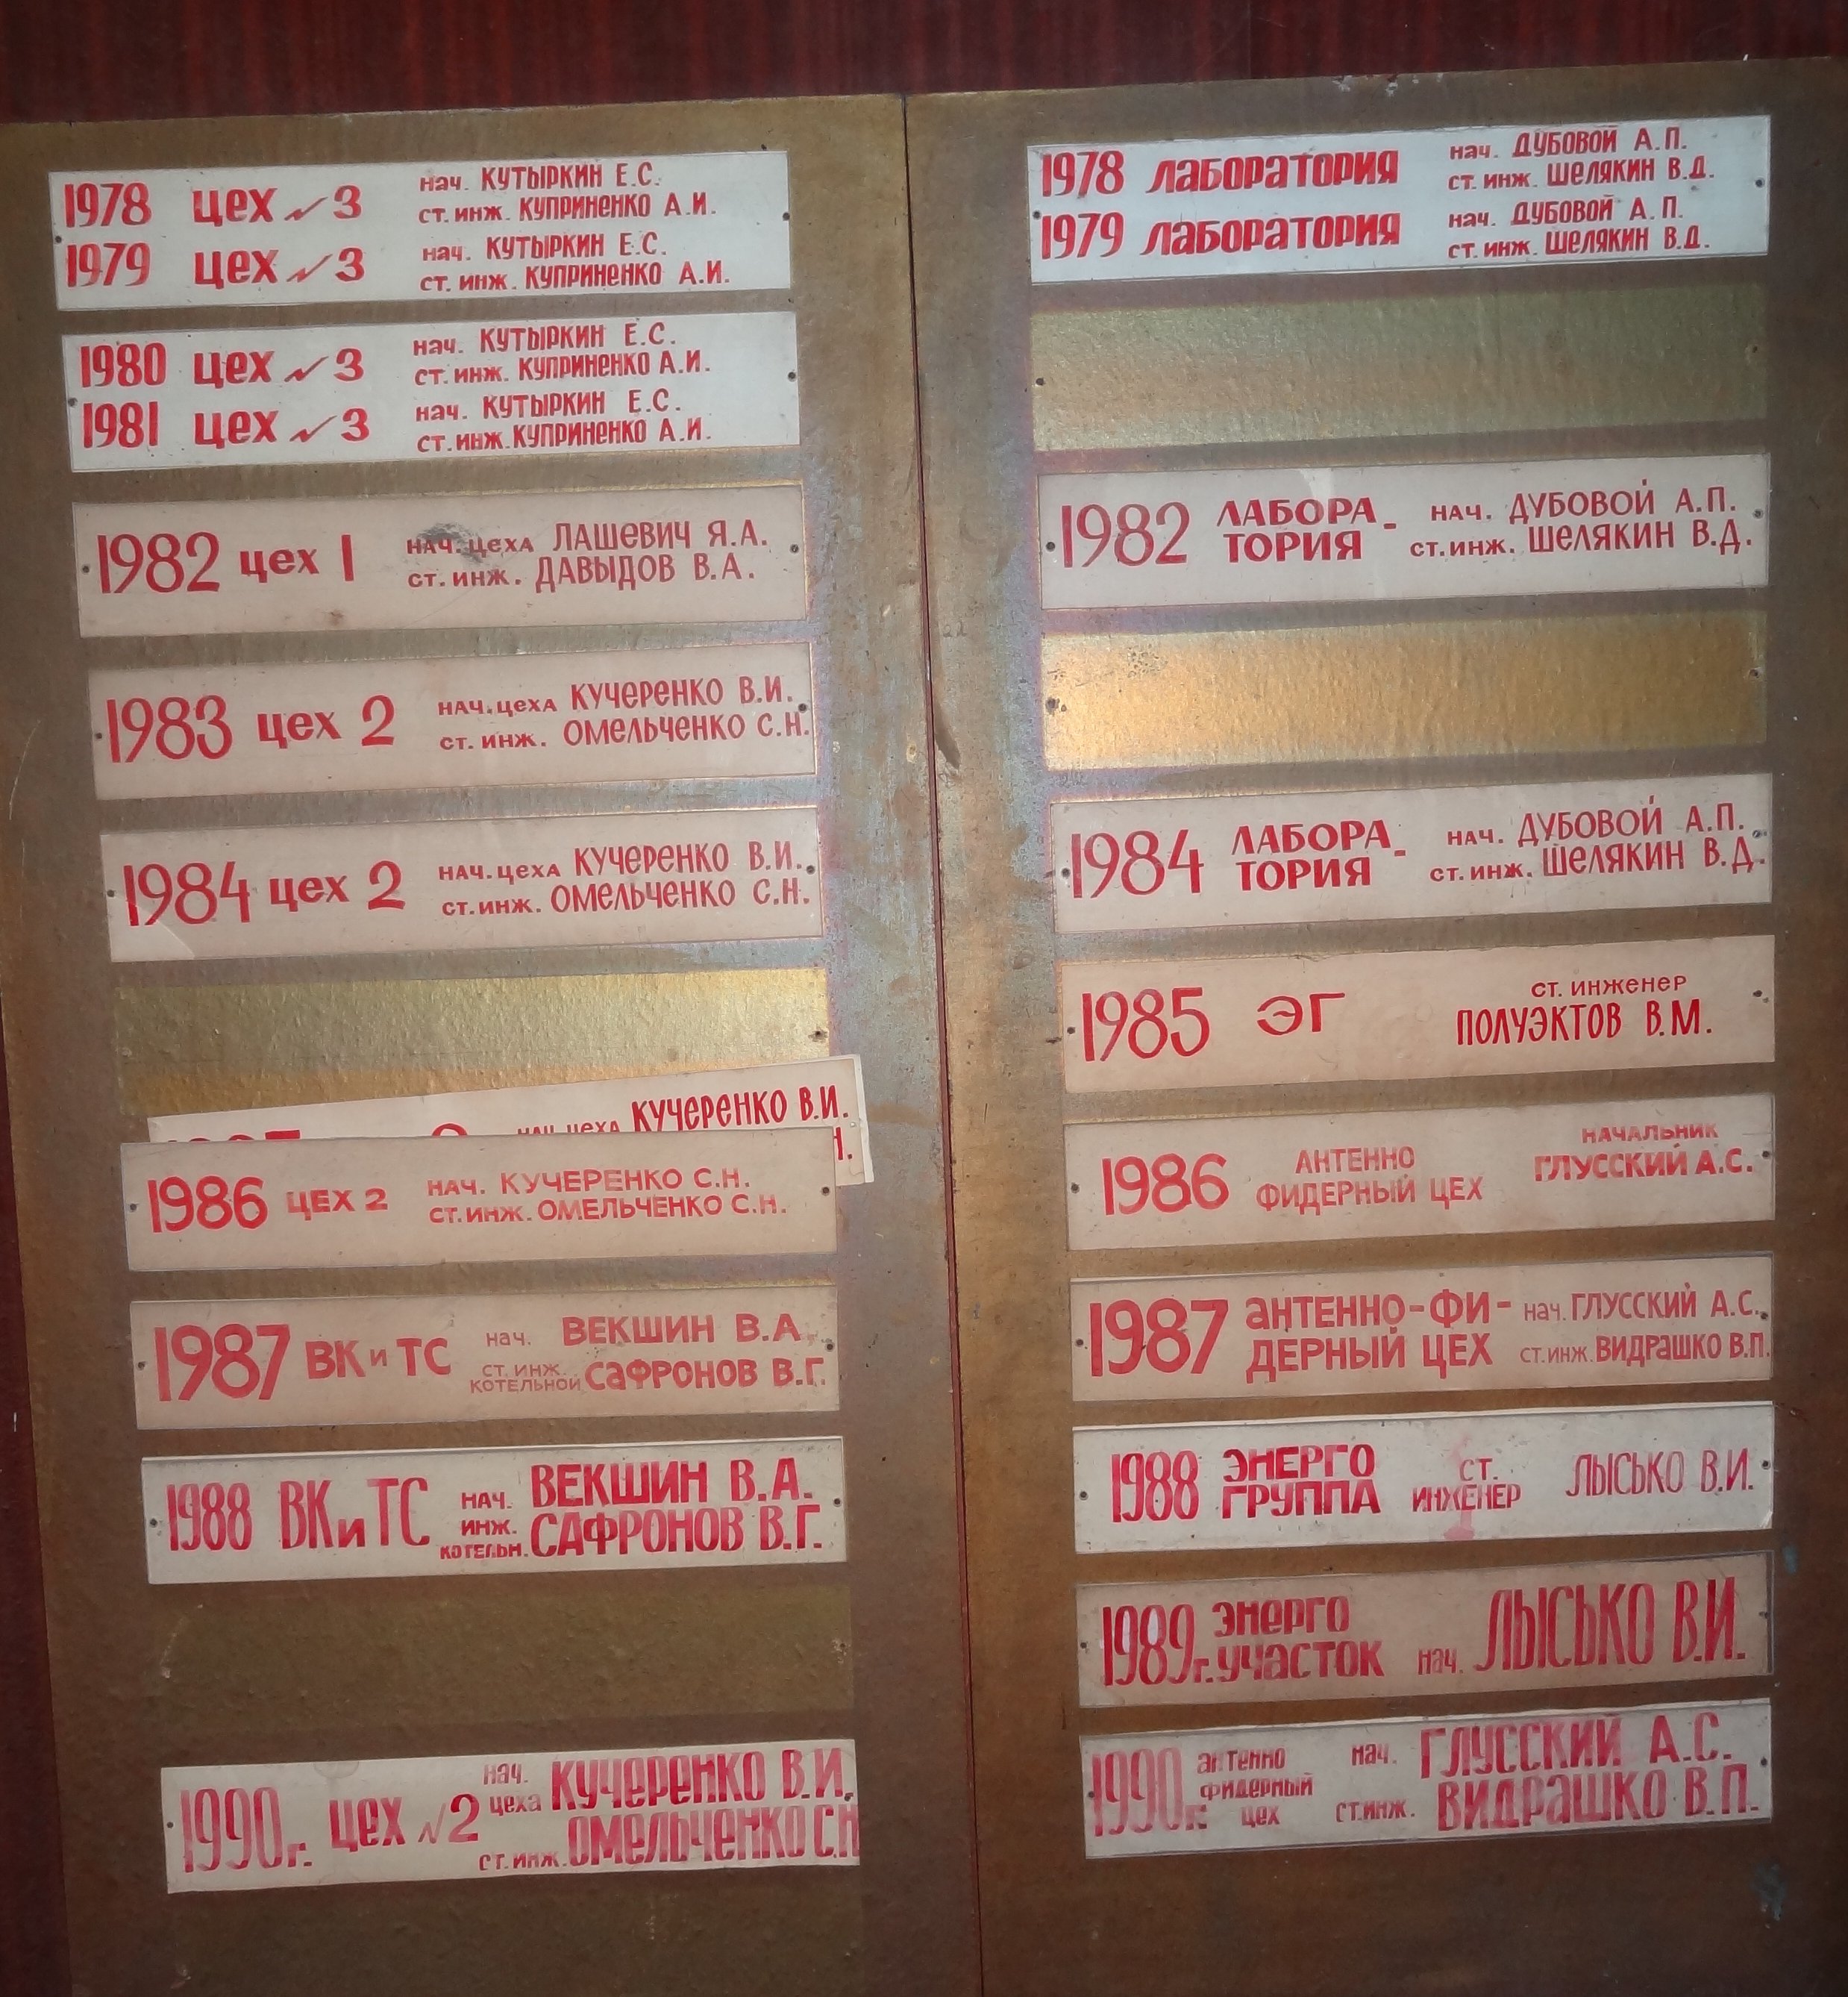 1978 цех № 3 нач. КУТЫРКИН Е.С.
ст. инж. КУПРИНЕНКО А.И.
1979 цех № 3 нач. КУТЫРКИН Е.С.
ст. инж. КУПРИНЕНКО А.И.
1980 цех № 3 нач. КУТЫРКИН Е.С.
ст. инж. КУПРИНЕНКО А.И.
1981 цех № 3 нач. КУТЫРКИН Е.С.
ст. инж. КУПРИНЕНКО А.И.
1982 цех 1 НАЧ. ЦЕХА ЛАШЕВИЧ Я.А.
СТ. ИНЖ. ДАВЫДОВ В.А.
1983 цех 2 НАЧ. ЦЕХА КУЧЕРЕНКО В.И.
СТ. ИНЖ. ОМЕЛЬЧЕНКО С.Н.
1984 цех 2 НАЧ. ЦЕХА КУЧЕРЕНКО В.И.
СТ. ИНЖ. ОМЕЛЬЧЕНКО С.Н.
НАЧ. ЦЕХА КУЧЕРЕНКО В.И.
Н.
1986 ЦЕХ 2 НАЧ. КУЧЕРЕНКО С.Н.
СТ. ИНЖ. ОМЕЛЬЧЕНКО С.Н.
1987 ВК и ТС нач. ВЕКШИН В.А.
СТ. ИНЖ. КОТЕЛЬНОЙ САФРОНОВ В.Г.
1988 ВК и ТС НАЧ. ВЕКШИН В.А.
ИНЖ. КОТЕЛЬН. САФРОНОВ В.Г.
1990 г. цех № 2 нач. цеха КУЧЕРЕНКО В.И.
ст. инж. ОМЕЛЬЧЕНКО С.Н
1978 ЛАБОРАТОРИЯ нач. ДУБОВОЙ А.П.
ст. инж. ШЕЛЯКИН В.Д.
1979 ЛАБОРАТОРИЯ нач. ДУБОВОЙ А.П.
ст. инж. ШЕЛЯКИН В.Д.
1982 ЛАБОРА- НАЧ. ДУБОВОЙ А.П.
ТОРИЯ СТ. ИНЖ. ШЕЛЯКИН В.Д.
1984 ЛАБОРА- НАЧ. ДУБОВОЙ А.П.
ТОРИЯ СТ. ИНЖ. ШЕЛЯКИН В.Д.
1985 ЭГ СТ. ИНЖЕНЕР
ПОЛУЭКТОВ В.М.
1986 АНТЕННО НАЧАЛЬНИК
ФИДЕРНЫЙ ЦЕХ ГЛУССКИЙ А.С.
1987 АНТЕННО-ФИ- нач. ГЛУССКИЙ А.С.
ДЕРНЫЙ ЦЕХ СТ. ИНЖ. ВИДРАШКО В.П.
1988 ЭНЕРГО СТ. ЛЫСЬКО В.И.
ГРУППА ИНЖЕНЕР
1989 г. ЭНЕРГО
УЧАСТОК нач. ЛЫСЬКО В.И.
1990 г. антенно нач. ГЛУССКИЙ А.С.
фидерный
цех ст. инж. ВИДРАШКО В.П.